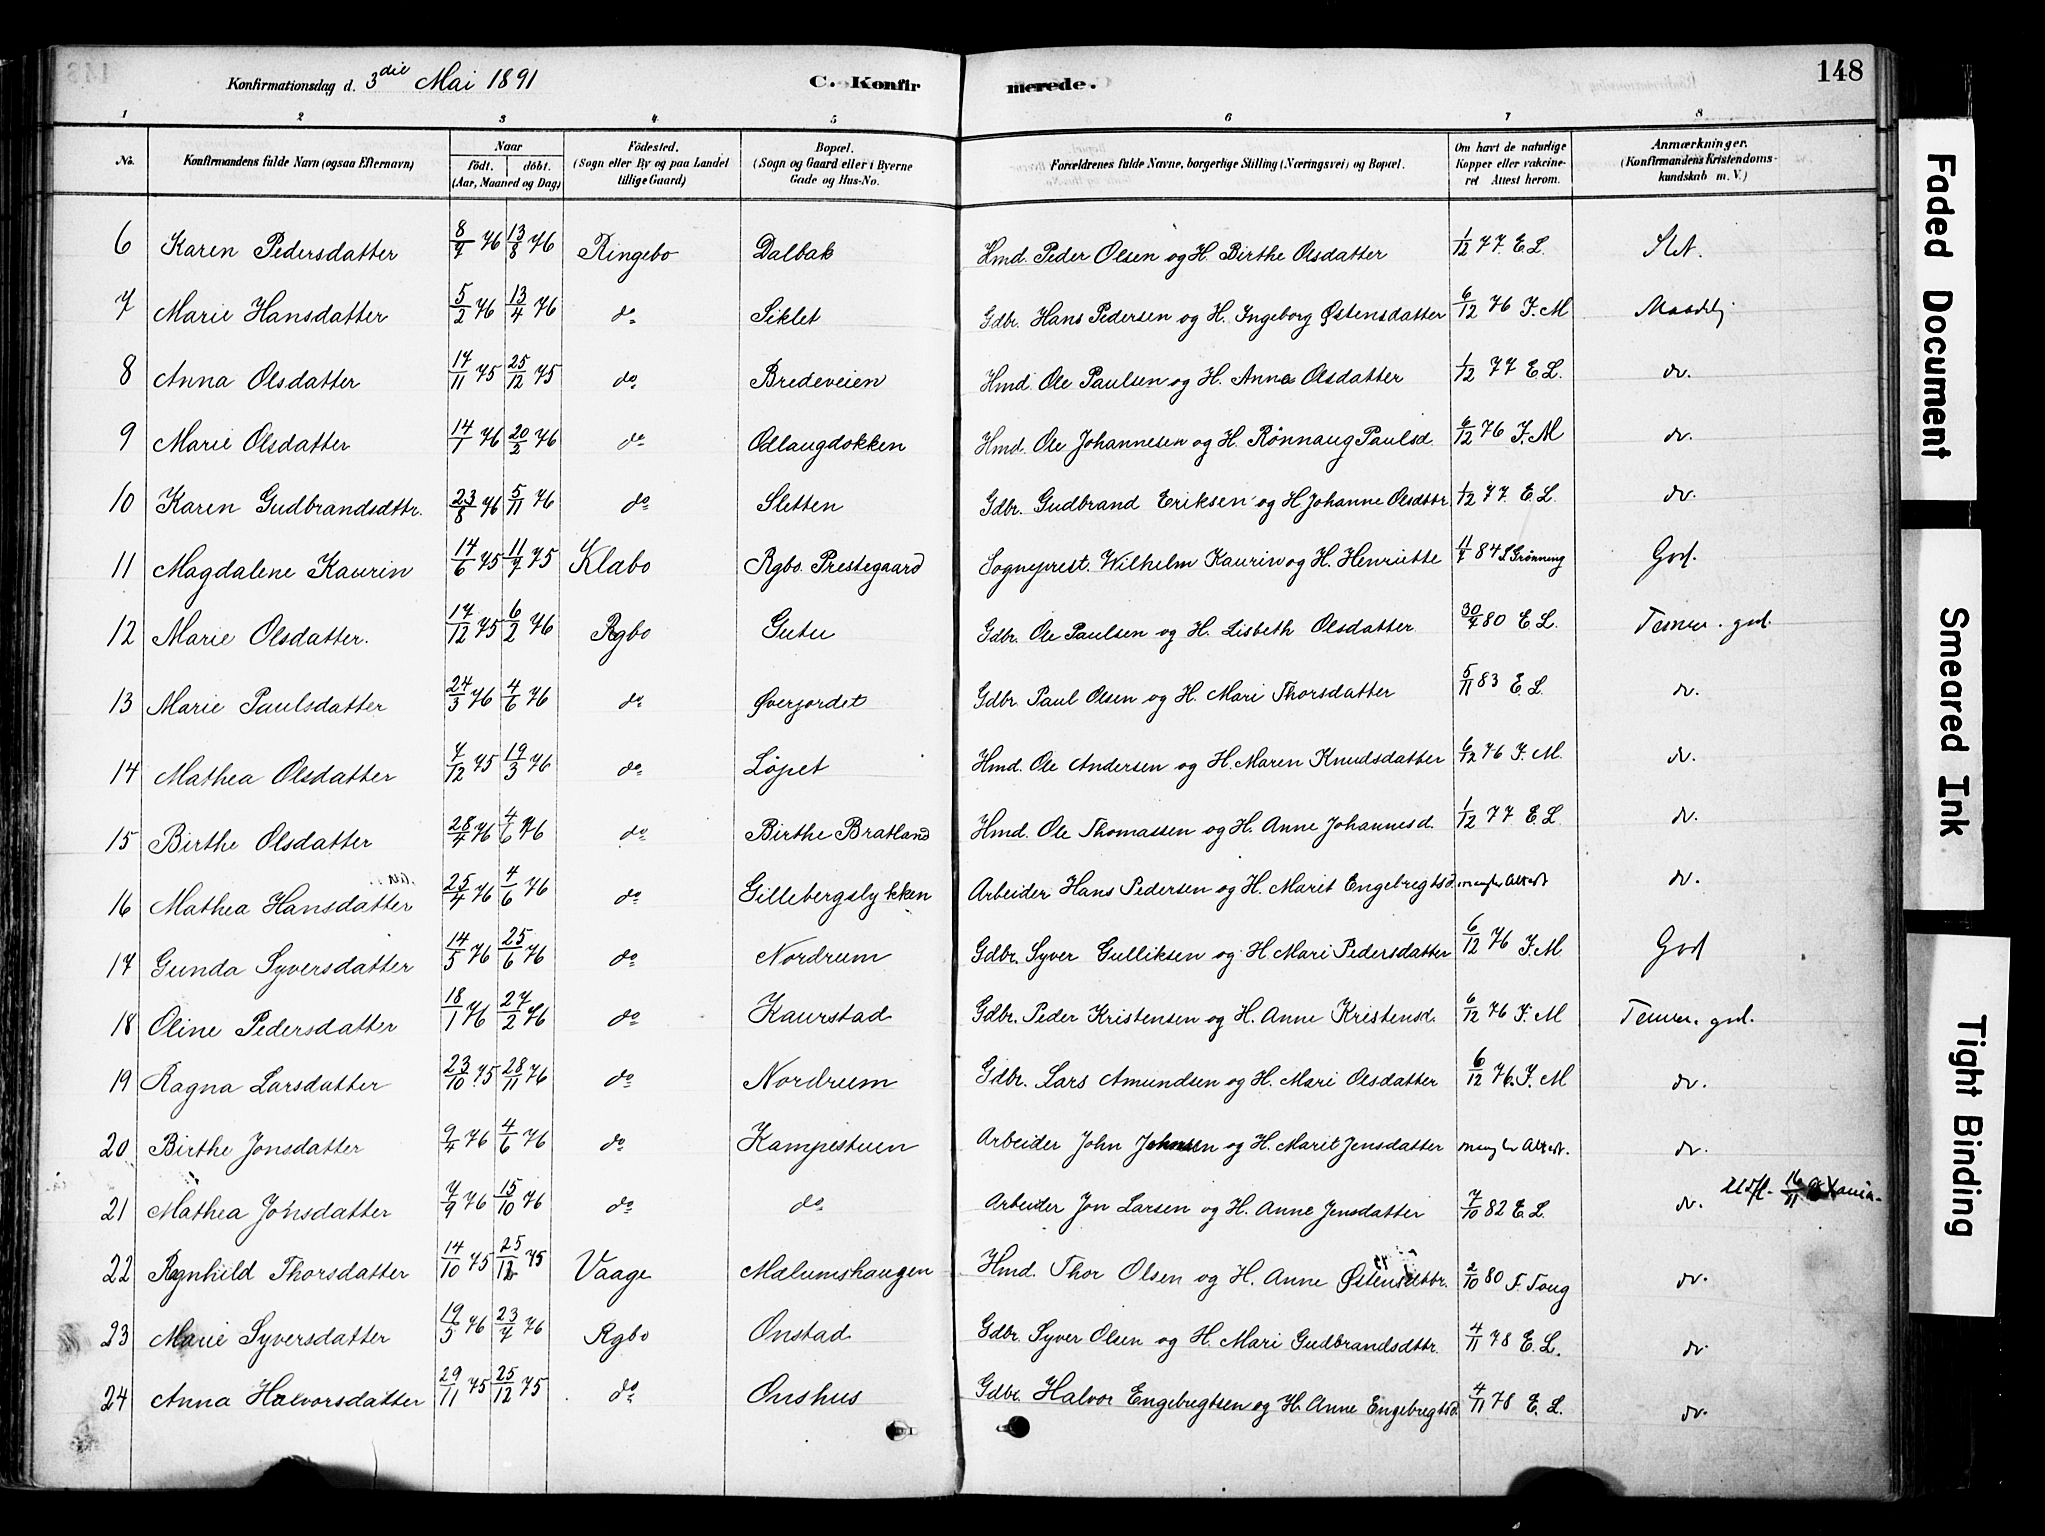 148
Konfirmationsdag d. 3die Mai 1891 C. Konfirmerede.
1 2 3 4 5 6 7 8
No. Konfirmandens fulde Navn (ogsaa Efternavn) Naar født. døbt. (Aar, Maaned og Dag) Fødested. (Sogn eller By og paa Landet tillige Gaard) Bopæl. (Sogn og Gaard eller i Byerne Gade og Hus-No. Forældrenes fulde Navne, borgerlige Stilling (Næringsvei) og Bopæl. Om havt de naturlige Kopper eller vakcineret Attest herom. Anmærkninger. (Konfirmandens Kristendomskundskab m. V.)
6 Karen Pedersdatter 8/7 76 13/8 76 Ringebo Dalbak Hmd. Peder Olsen og H. Birthe Olsdatter 1/12 77. E L. Slet.
7 Marie Hansdatter 5/2 76 13/4 76 do Siklet Gdbr. Hans Pedersen og H. Ingeborg Østensdatter 6/12 76 J. M
8 Anna Olsdatter 17/11 75 25/12 75 do Bredeveien Hmd. Ole Paulsen og H. Anne Olsdatter 1/12 77 E L. do.
9 Marie Olsdatter 14/7 76 20/2 76 do Odlaugdokken Hmd. Ole Johannesen og H. Rønnaug Paulsd. 6/12 76 J. M do.
10 Karen Gudbrandsdttr. 23/8 76 5/11 76 do Sletten Gdbr. Gudbrand Eriksen og H Johanne Olsdttr. 1/12 77. E L. do.
11 Magdalene Kaurin 14/6 75 11/7 75 Klæbo Rgbo. Prestegaard Sogneprest. Wilhelm Kaurin og H. Henriette 11/7 84 S Grønning God.
12 Marie Olsdatter. 17/12 75 6/2 76 Rgbo Gutu Gdbr. Ole Paulsen og H. Lisbeth Olsdatter 30/7 80 E L. Temm. god.
13 Marie Paulsdatter 24/3 76 4/6 76 do Øverjordet Gdbr. Paul Olsen og H. Mari Thorsdatter 5/11 83 E. L. do.
14 Mathea Olsdatter 7/12 75 19/3 76 do Løpet Hmd. Ole Andersen og H. Maren Knudsdatter 6/12 76 J. M. do.
15 Birthe Olsdatter 28/4 76 4/6 76 do Birthe Bratland Hmd. Ole Thomassen og H. Anne Johannesd. 1/12 77 E. L. do.
16 Mathea Hansdatter 25/4 76 4/6 76 do Gillebergslykken Arbeider Hans Pedersen og H. Marit Engebregtsd. mangler Attest do.
17 Gunda Syversdatter 14/5 76 25/6 76 do Nordrum Gdbr. Syver Gulliksen og H. Mari Pedersdatter 6/12 76 J. M God
18 Oline Pedersdatter 18/1 76 27/2 76 do Kaurstad Gdbr. Peder Kristensen og H. Anne Kristensd. 6/12 76 J. M Temm. god.
19 Ragna Larsdatter 23/10 75 28/11 76 do Nordrum Gdbr. Lars Amundsen og H. Mari Olsdatter 6/12 76. J. M do.
20 Birthe Jonsdatter 9/4 76 4/6 76 do Kampestuen Arbeider John Johnsen og H. Marit Jensdatter mangler Attest. do.
21 Mathea Jonsdatter 7/9 76 15/10 76 do do Arbeider Jon Larsen og H. Anne Jensdatter 7/10 82 E. L. do. 16/11
22 Ragnhild Thorsdatter 14/10 75 25/12 75 Vaage Mælumshaugen Hmd. Thor Olsen og H. Anne Østensdttr. 2/10 80 F. Toug do.
23 Marie Syversdatter 19/5 76 23/7 76 Rgbo Onstad Gdbr. Syver Olsen og H. Mari Gudbrandsdttr. 4/11 78 E. L. do
24 Anna Halvorsdatter 29/11 75 25/12 75 do Onshus Gdbr. Halvor Engebregtsen og H. Anne Engebregtsd. 4/11 78 E. L. do.
Faded Document
Smeared Ink
Tight Binding